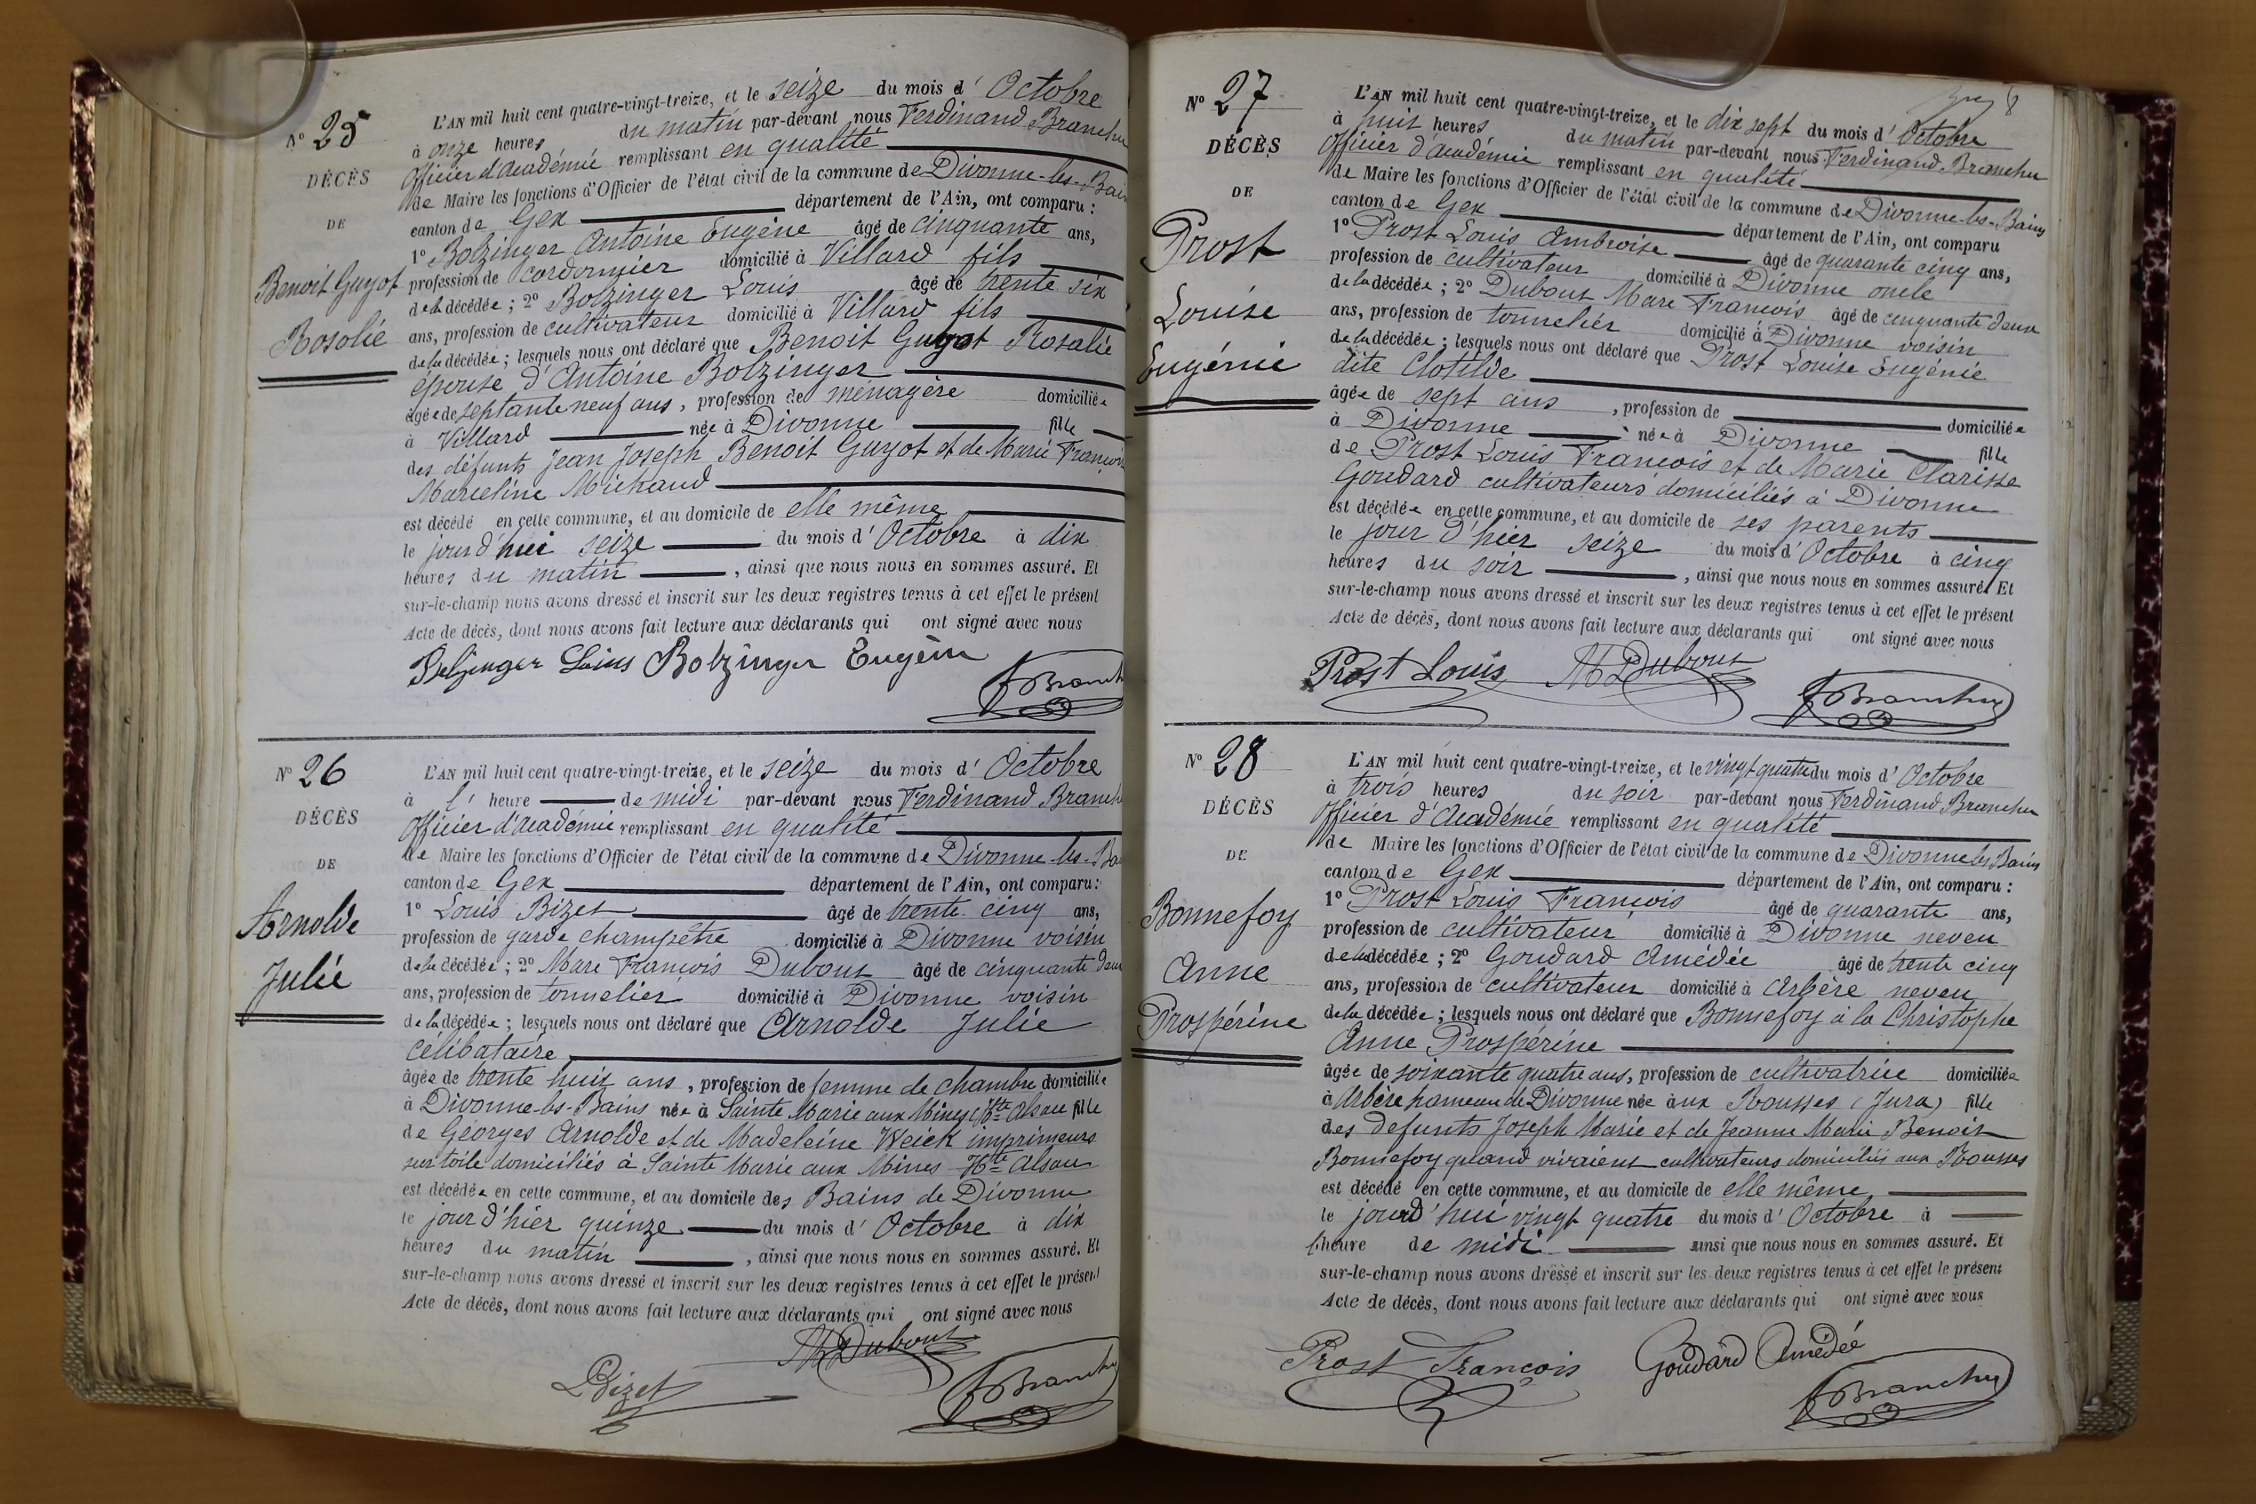 N° 25
DÉCÈS
DE
Benoit Guyot
Rosalie
L'AN mil huit cent quatre-vingt-treize, et le seize du mois d' Octobre
à onze heures du matin par-devant nous Ferdinand Branchu
Officier d'Académie remplissant en qualité
de Maire les fonctions d'Officier de l'état civil de la commune de Divonne-les-Bains
canton de Gex département de l'Ain, ont comparu :
1° Bolzinger Antoine Eugène âgé de cinquante ans,
profession de cordonnier domicilié à Villard fils
de la décédée ; 2° Bolzinger Louis âgé de trente six
ans, profession de cultivateur domicilié à Villard fils
de la décédée ; lesquels nous ont déclaré que Benoit Guyot Rosalie
épouse d'Antoine Bolzinger
âgée de septante neuf ans, profession de ménagère domiciliée
à Villard née à Divonne fille
des défunts Jean Joseph Benoit Guyot et de Marie Françoise
Marceline Michaud
est décédé en cette commune, et au domicile de elle même
le jourd'hui seize du mois d' Octobre à dix
heures du matin , ainsi que nous nous en sommes assuré. Et
sur-le-champ nous avons dressé et inscrit sur les deux registres tenus à cet effet le présent
Acte de décès, dont nous avons fait lecture aux déclarants qui ont signé avec nous
Bolzinger Louis Bolzinger Eugène
F Branchu
N° 26
DÉCÈS
DE
Arnolde
Julie
L'AN mil huit cent quatre-vingt-treize, et le seize du mois d' Octobre
à l' heure de midi par-devant nous Ferdinand Branchu
Officier d'Académie remplissant en qualité
de Maire les fonctions d'Officier de l'état civil de la commune de Divonne-les-Bains
canton de Gex département de l'Ain, ont comparu :
1° Louis Bizet âgé de trente cinq ans,
profession de garde champêtre domicilié à Divonne voisin
de la décédée ; 2° Marc François Dubout âgé de cinquante deux
ans, profession de tonnelier domicilié à Divonne voisin
de la décédée ; lesquels nous ont déclaré que Arnolde Julie
célibataire
âgée de trente huit ans, profession de femme de chambre domiciliée
à Divonne-les-Bains née à Sainte Marie aux Mines (Hte Alsace fille
de Georges Arnolde et de Madeleine Weick imprimeurs
sur toile domiciliés à Sainte Marie aux Mines Hte Alsace
est décédée en cette commune, et au domicile des Bains de Divonne
le jour d'hier quinze du mois d' Octobre à dix
heures du matin , ainsi que nous nous en sommes assuré. Et
sur-le-champ nous avons dressé et inscrit sur les deux registres tenus à cet effet le présent
Acte de décès, dont nous avons fait lecture aux déclarants qui ont signé avec nous
M Dubout
L Bizet
F Branchu
N° 27
DÉCÈS
DE
Prost
Louise
Eugénie
L'AN mil huit cent quatre-vingt-treize, et le dix sept du mois d' Octobre
à huit heures du matin par-devant nous Ferdinand Branchu
Officier d'Académie remplissant en qualité
de Maire les fonctions d'Officier de l'état civil de la commune de Divonne-les-Bains
canton de Gex département de l'Ain, ont comparu
1° Prost Louis Ambroise âgé de quarante cinq ans,
profession de cultivateur domicilié à Divonne oncle
de la décédée ; 2° Dubout Marc François âgé de cinquante deux
ans, profession de tonnelier domicilié à Divonne voisin
de la décédée ; lesquels nous ont déclaré que Prost Louise Eugénie
dite Clotilde
âgée de sept ans , profession de domiciliée
à Divonne née à Divonne fille
de Prost Louis François et de Marie Clarisse
Goudard cultivateurs domiciliés à Divonne
est décédée en cette commune, et au domicile de ses parents
le jour d'hier seize du mois d' Octobre à cinq
heures du soir , ainsi que nous nous en sommes assuré. Et
sur-le-champ nous avons dressé et inscrit sur les deux registres tenus à cet effet le présent
Acte de décès, dont nous avons fait lecture aux déclarants qui ont signé avec nous
Prost Louis M Dubout
F Branchu
N° 28
DÉCÈS
DE
Bonnefoy
Anne
Prospérine
L'AN mil huit cent quatre-vingt-treize, et le vingt quatre du mois d' Octobre
à trois heures du soir par-devant nous Ferdinand Branchu
Officier d'Académie remplissant en qualité
de Maire les fonctions d'Officier de l'état civil de la commune de Divonne les Bains
canton de Gex département de l'Ain, ont comparu :
1° Prost Louis François âgé de quarante ans,
profession de cultivateur domicilié à Divonne neveu
de la décédée ; 2° Goudard Amédée âgé de trente cinq
ans, profession de cultivateur domicilié à Arbère neveu
de la décédée ; lesquels nous ont déclaré que Bonnefoy à la Christophe
Anne Prospérine
âgée de soixante quatre ans, profession de cultivatrice domiciliée
à Arbère hameau de Divonne née aux Rousses (Jura) fille
des défunts Joseph Marie et de Jeanne Marie Benoit
Bonnefoy quand vivaient cultivateurs domiciliés aux Rousses
est décédé en cette commune, et au domicile de elle même
le jourd'hui vingt quatre du mois d' Octobre à
l'heure de midi ainsi que nous nous en sommes assuré. Et
sur-le-champ nous avons dressé et inscrit sur les deux registres tenus à cet effet le présent
Acte de décès, dont nous avons fait lecture aux déclarants qui ont signé avec nous
Prost François Goudard Amédée
F Branchu